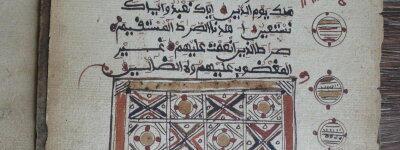 ملك يوم الدين إياك نعبد وإياك
نستعين اهدنا الصراط المستقيم
صراط الذين أنعمت عليهم غير
المغضوب عليهم ولا الضالين